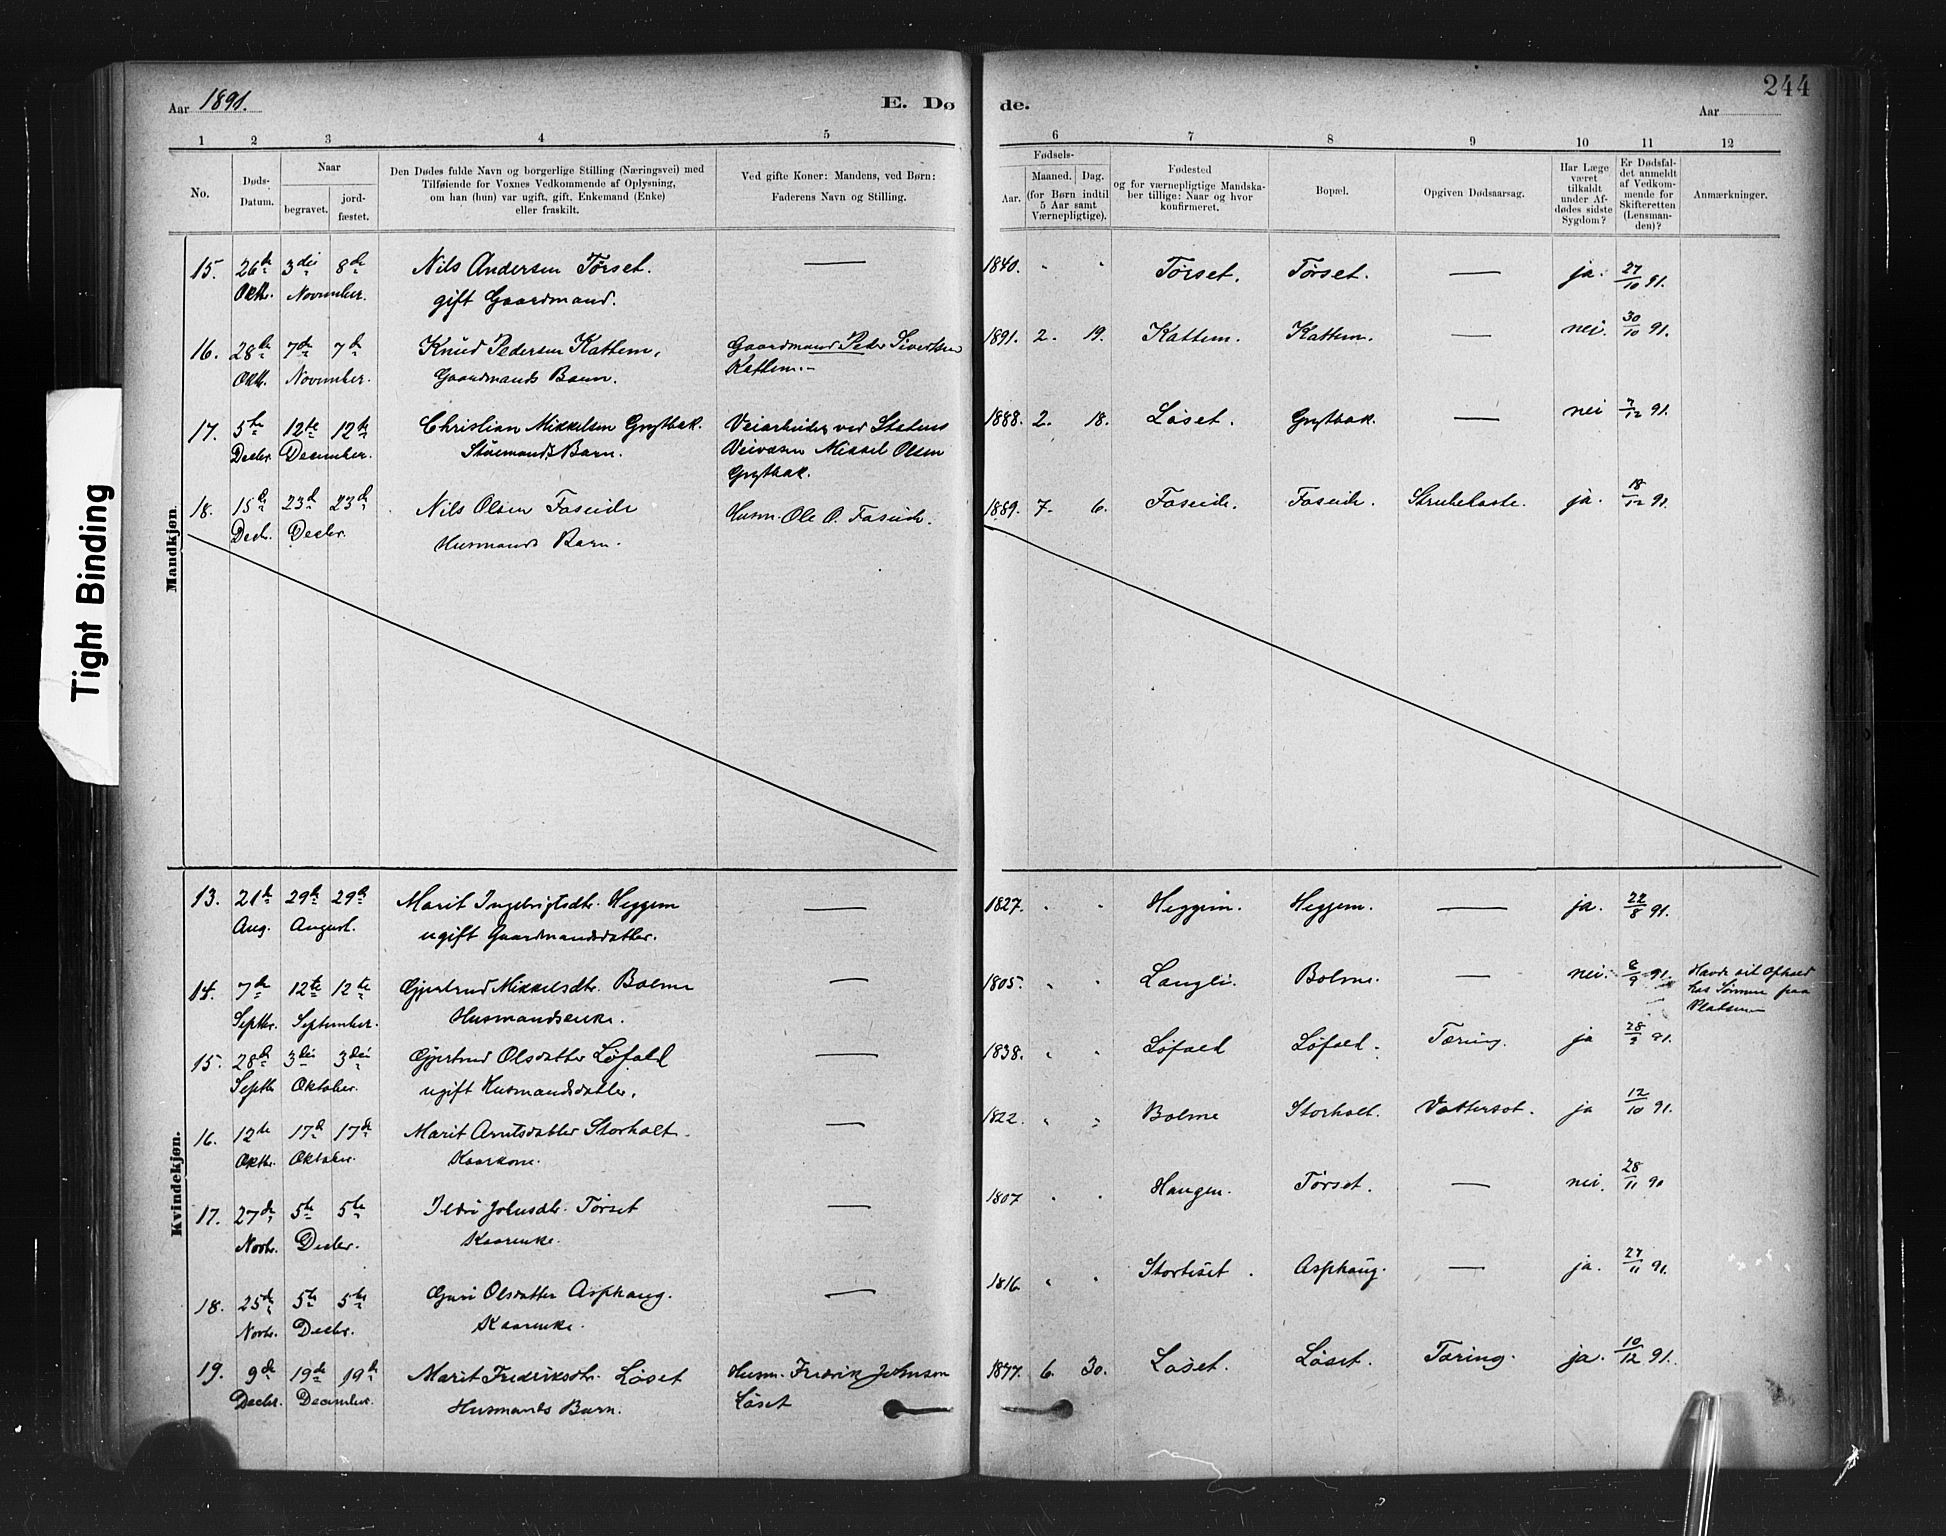 244
Aar 1891.
E. Dø de.
Aar
1 2 3 4 5 6 7 8 9 10 11 12
No.
Døds-
Datum.
Naar
begravet.
jord-
fæstet.
Den Dødes fulde Navn og borgerlige Stilling (Næringsvei) med
Tilføiende for Voxnes Vedkommende af Oplysning,
om han (hun) var ugift, gift, Enkemand (Enke)
eller fraskilt.
Ved gifte Koner: Mandens, ved Børn:
Faderens Navn og Stilling.
Fødsels-
Aar.
Maaned. Dag.
(for Børn indtil
5 Aar samt
Værnepligtige).
Fødested
og for værnepligtige Mandska-
ber tillige: Naar og hvor
konfirmeret.
Bopæl.
Opgiven Dødsaarsag.
Har Læge
været
tilkaldt
under Af-
dødes sidste
Sygdom?
Er Dødsfal-
det anmeldt
af Vedkom-
mende for
Skifteretten
(Lensman-
den)?
Anmærkninger.
Tight Binding
Mandkjøn.
15. 26de 3die 8de Nils Andersen Tørset. — 1840. " " Tørset. Tørset. — ja. 27/10 91.
Oktbr. November. gift Gaardmand.
16. 28de 7de 7de Knud Pedersen Kattem, Gaardmand Peder Sivertsen 1891. 2. 19. Kattem. Kattem. — nei. 30/10 91.
Oktb. November. Gaardmands Barn. Kattem.
17. 5te 12te 12te Christian Mikkelsen Grytbak. Veiarbeider ved Statens 1888. 2. 18. Løset. Grytbak. — nei 7/12 91.
Decbr. December. Barn. Veivæsen Mikkel Olsen
Grytbak.
18. 15de 23de 23de Nils Olsen Faseide Husm. Ole O. Faseide. 1889. 7. 6. Faseide. Faseide. Strubehoste. ja. 18/12 91.
Decb. Decbr. Husmands Barn.
Kvindekjøn.
13. 21de 29de 29de Marit Ingebrigtsdtr. Heggem — 1827. " " Heggem. Heggem. — ja. 22/8 91.
Aug. August. ugift Gaardmandsdatter.
14. 7de 12te 12te Gjertrud Mikkelsdtr. Bolme — 1805. " " Langli. Bolme. — nei. 8/9 91. Havde sit Ophold
Septbr. September. Husmandsenke. hos Sønnen paa
Pladsen
15. 28de 3die 3die Gjertrud Olsdatter Løfald — 1838. " " Løfald Løfald. Tæring. ja 28/9 91.
Septbr. Oktober. ugift Husmandsdatter.
16. 12te 17de 17de Marit Arntsdatter Storholt. — 1822. " " Bolme Storholt. Vattersot. ja 12/10 91.
Oktbr. Oktober. Kaarkone.
17. 27de 5te 5te Ildri Johnsdtr. Tørset — 1807 " " Haugen. Tørset. — nei. 28/11 90
Novbr. Decbr. Kaarenke.
18. 25de 5te 5te Guri Olsdatter Asphaug. — 1816 " " Storlisæt. Asphaug. — ja. 27/11 91.
Novbr. Decbr. Kaarenke.
19. 9de 19de 19de Marit Frederiksdtr. Løset Husm. Fredrik Johnson 1877. 6. 30. Løset. Løset. Tæring. ja. 10/12 91.
Decbr. December. Husmands Barn. Løset